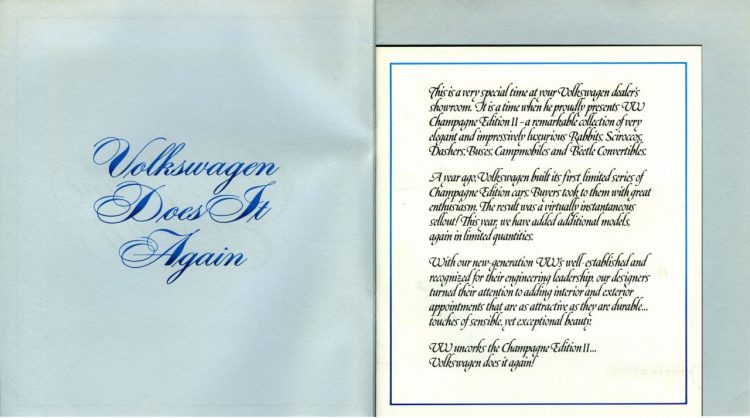 Volkswagen
Does It
Again
This is a very special time at your Volkswagen dealer's
showroom. It is a time when he proudly presents VW
Champagne Edition II - a remarkable collection of very
elegant and impressively luxurious Rabbits, Sciroccos,
Dashers, Buses, Campmobiles and Beetle Convertibles.
A year ago, Volkswagen built its first limited series of
Champagne Edition cars. Buyers took to them with great
enthusiasm. The result was a virtually instantaneous
sellout! This year, we have added additional models,
again in limited quantities.
With our new-generation VW's well-established and
recognized for their engineering leadership, our designers
turned their attention to adding interior and exterior
appointments that are as attractive as they are durable...
touches of sensible, yet exceptional beauty.
VW uncorks the Champagne Edition II...
Volkswagen does it again!